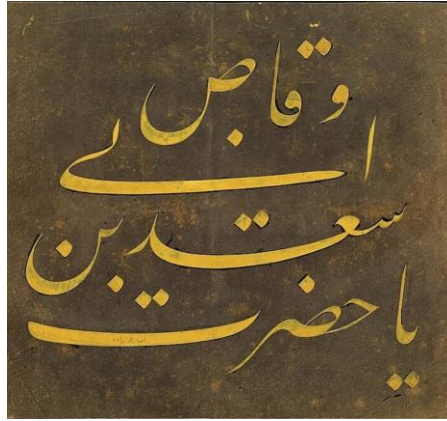 یا حضرت
سعد بن
ابی
وقاص